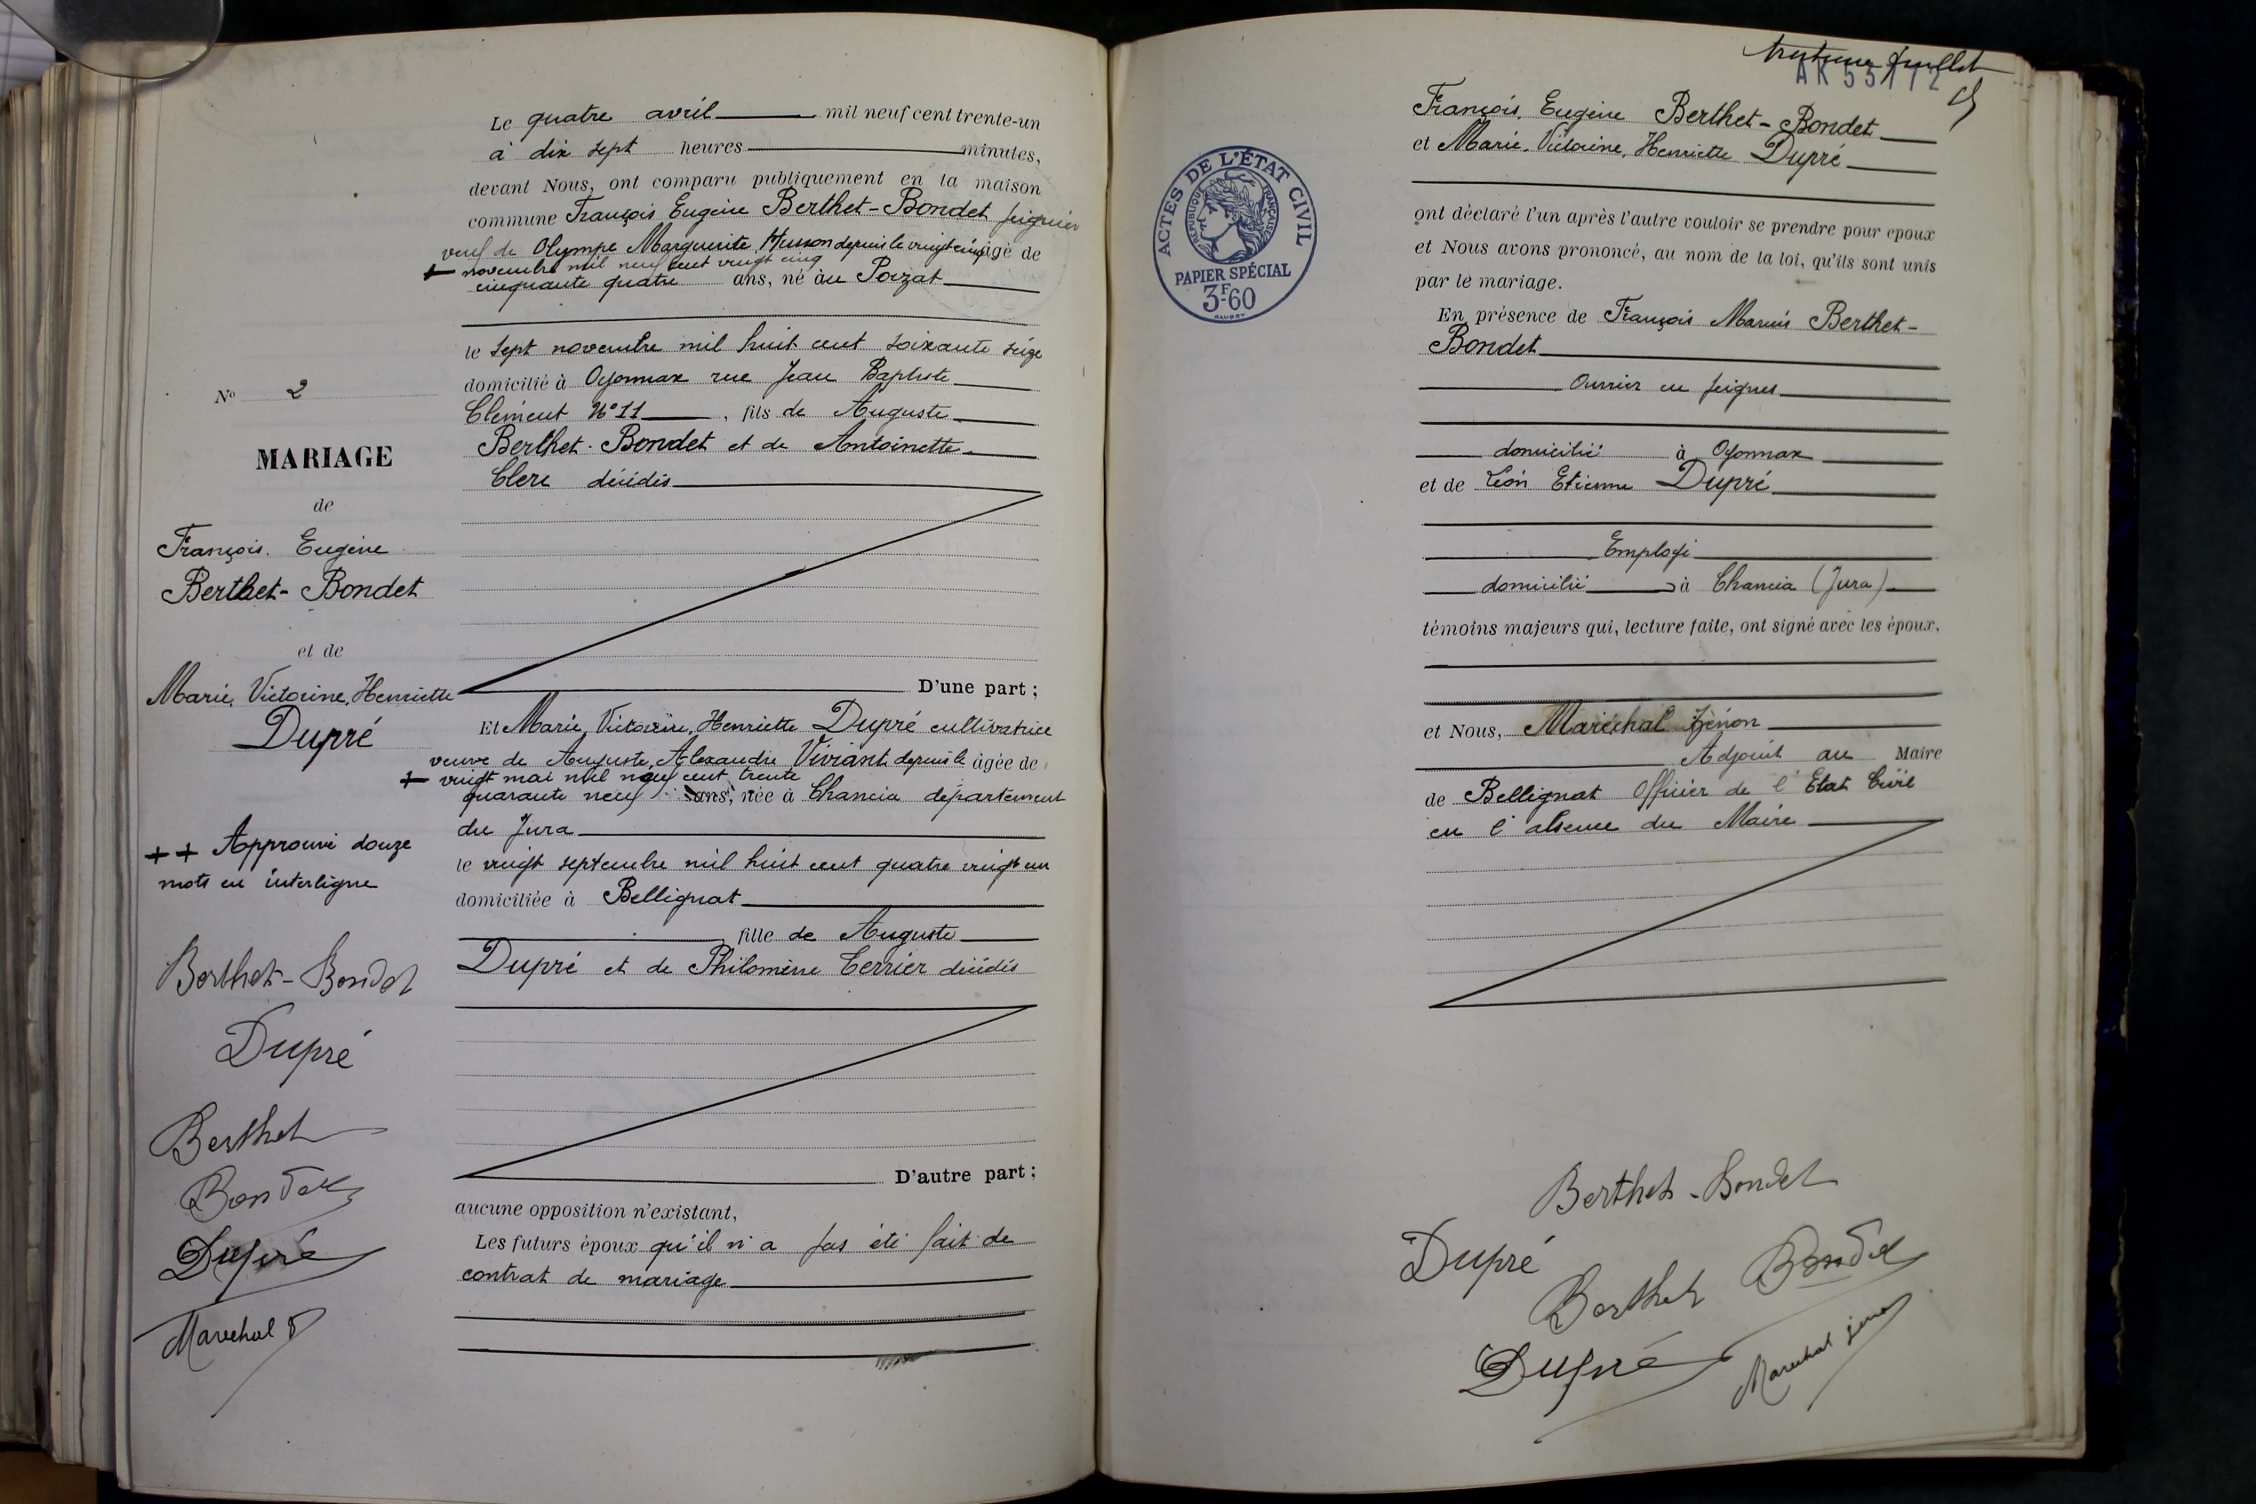 Le quatre avril mil neuf cent trente-un
à dix sept heures minutes,
devant Nous, ont comparu publiquement en la maison
commune François Eugène Berthet-Bondet peignier
veuf de Olympe Marguerite Husson depuis le vingt cinq âgé de
+ novembre mil neuf cent vingt cinq
cinquante quatre ans, né à au Poizat
le sept novembre mil huit cent soixante seize
domicilié à Oyonnax rue Jean Baptiste
Clément N° 11, fils de Auguste
Berthet-Bondet et de Antoinette
Clerc décédés
D'une part ;
Et Marie, Victorine, Henriette Dupré cultivatrice
veuve de Auguste, Alexandre Viviant depuis le âgée de
+ vingt mai mil neuf cent trente
quarante neuf ans, née à Chancia département
du Jura
le vingt septembre mil huit cent quatre vingt un
domiciliée à Bellignat
fille de Auguste
Dupré et de Philomène Cerrier décédés
D'autre part ;
aucune opposition n'existant,
Les futurs époux qu'il n'a pas été fait de
contrat de mariage
No 2
MARIAGE
de
François. Eugène
Berthet-Bondet
et de
Marie, Victorine, Henriette
Dupré
++ Approuvé douze
mots en interligne
Berthet-Bondet
Dupré
Berthet
Bondet
Dupré
Maréchal
feuillet
AK 55112
François, Eugène Berthet-Bondet
et Marie, Victorine, Henriette Dupré
ont déclaré l'un après l'autre vouloir se prendre pour époux
et Nous avons prononcé, au nom de la loi, qu'ils sont unis
par le mariage.
En présence de François Marius Berthet-
Bondet
Ouvrier en peignes
domicilié à Oyonnax
et de Léon Etienne Dupré
Employé
domicilié à Chancia (Jura)
témoins majeurs qui, lecture faite, ont signé avec les époux,
et Nous, Maréchal Zénon
Adjoint au Maire
de Bellignat Officier de l'Etat Civil
en l'absence du Maire
ACTES DE L'ÉTAT CIVIL
RÉPUBLIQUE FRANÇAISE
PAPIER SPÉCIAL
3F.60
Berthet-Bondet
Dupré
Berthet Bondet
Dupré
Maréchal